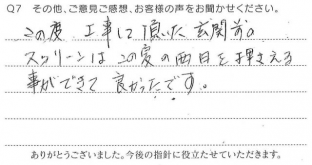 Q7 その他、ご意見ご感想、お客様の声をお聞かせください。
この度 工事して頂いた玄関前の
スクリーンは この夏の西日を押さえる
事ができて 良かったです。
ありがとうございました。今後の指針に役立たせていただきます。